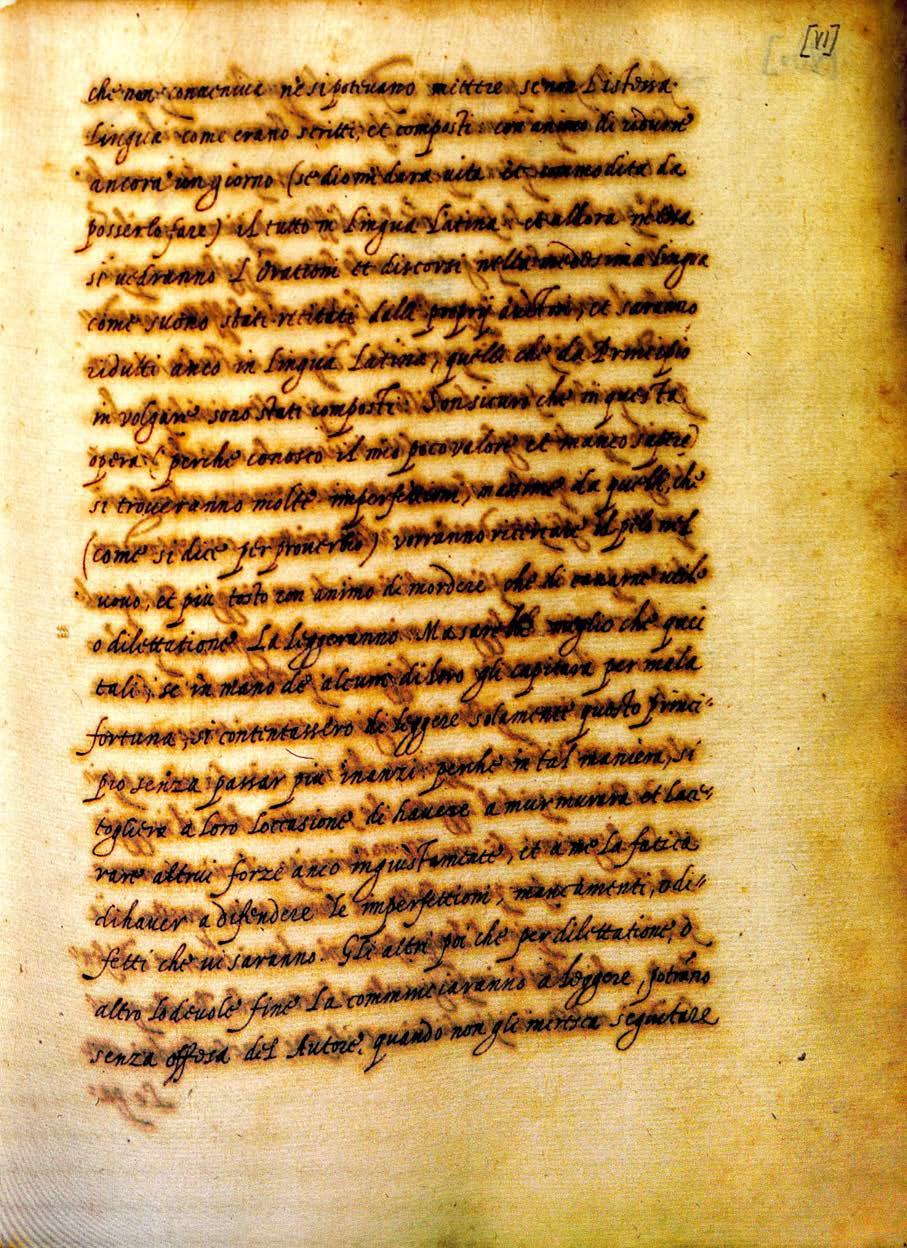 [VI]
che non conueniua nè si poteuano mettre senon L'istessa
Lingua come erano scritti, et composti: con animo di ridurre
ancora un giorno (se dio mi dara uita et commodita da
posserlo fare) il tutto in Lingua Latina: et allora
si uedranno L'Orationi et discorsi nella medesima Lingua
come suono stati recitati dalli proprij Auttori, et saranno
ridutti anco in Lingua Latina, quelli che da Principio
in volgare sono stati composti. Son sicuro che in questa
opera (perche conosco il mio poco valore et manco sapere)
si troueranno molte imperfettioni, massime da quelli, che
(come si dice per prouerbio) vorranno ricercare il pelo nel
uouo, et più tosto con animo di mordere che di cauarne utile
o dilettatione La leggeranno. Ma sarebbe meglio che quei
tali, se in mano de alcuni di loro gli capitara per mala
fortuna, si contentassero di leggere solamente questo princi-
pio senza passar piu inanzi: perche in tal maniera, si
togliera a loro L'occasione di hauere a murmurara et Lace-
rare altrui forze anco ingiustamente, et a me La fatica
di hauer a difendere le imperfettioni, mancamenti, o di-
fetti che ui saranno. Gli altri poi che per dilettatione, o
altro Lodeuole fine La comminciaranno a leggere, potrano
senza offesa del Autore, quando non gli incresca seguitare